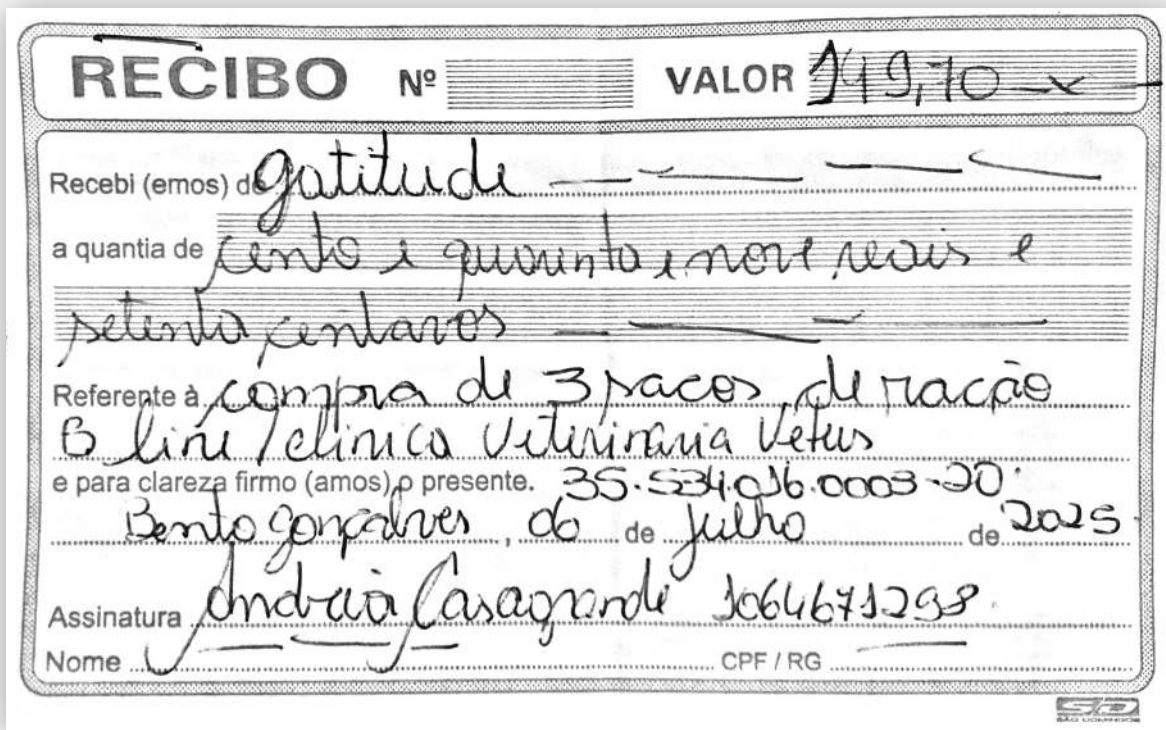 RECIBO Nº VALOR 149,70
Recebi (emos) de gatitude
a quantia de cento e quarenta e nove reais e
setenta centavos
Referente à compra de 3 sacos de ração
B line / clinica Veterinária Vetus
e para clareza firmo (amos) o presente. 35.534.016.0003-20
Bento Gonçalves, 06 de Julho de 2025
Assinatura Andreia Casagrande 1064671298
Nome CPF / RG
SD
SÃO DOMINGOS